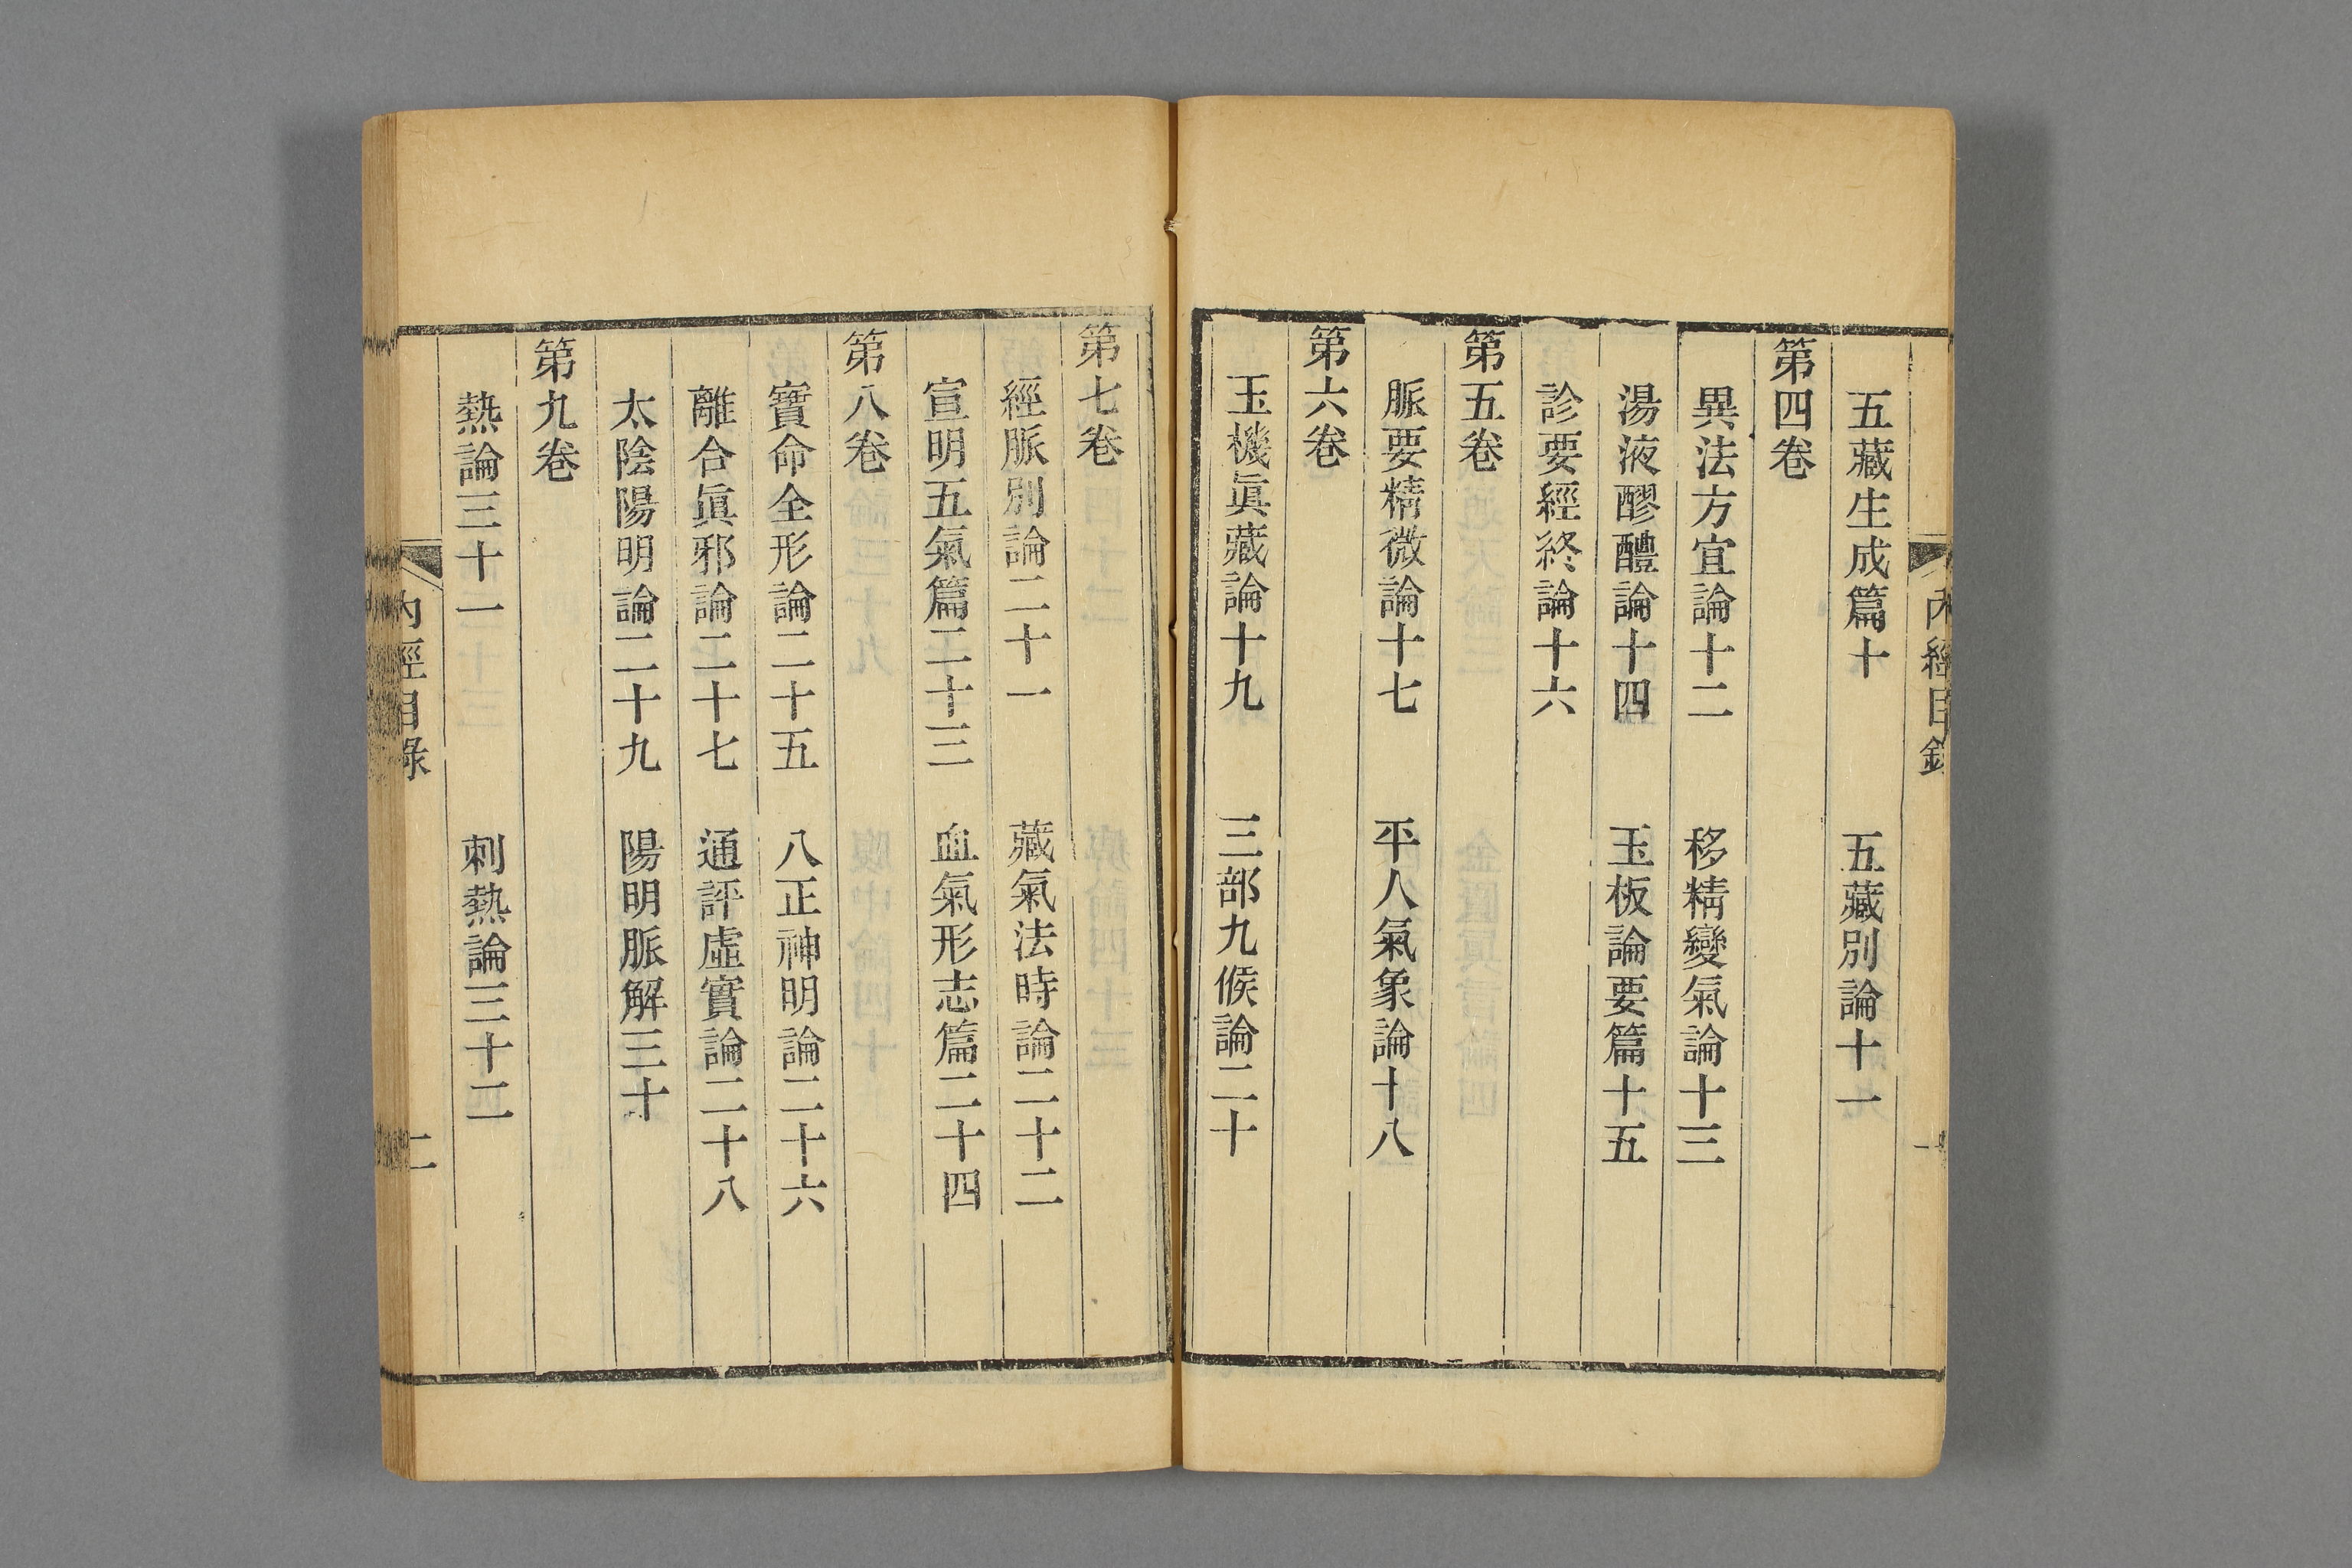 內經目錄
五藏生成篇十　五藏別論十一
第四卷
異法方宜論十二　移精變氣論十三
湯液醪醴論十四　玉板論要篇十五
診要經終論十六
第五卷
脈要精微論十七　平人氣象論十八
第六卷
玉機眞藏論十九　三部九候論二十
第七卷
經脈別論二十一　藏氣法時論二十二
宣明五氣篇二十三　血氣形志篇二十四
第八卷
寶命全形論二十五　八正神明論二十六
離合眞邪論二十七　通評虛實論二十八
太陰陽明論二十九　陽明脈解三十
第九卷
熱論三十一　刺熱論三十二
內經目錄　二